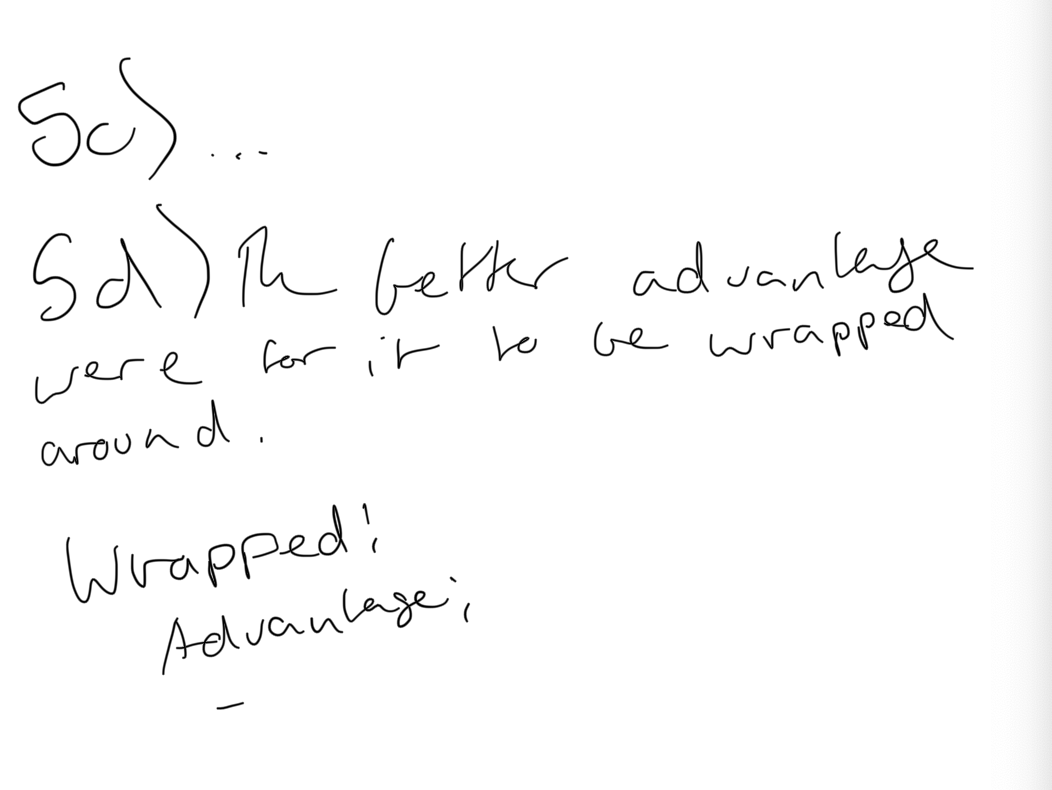 5c) ...
5d) The better advantage
were for it to be wrapped
around.
Wrapped!
Advantage;
-